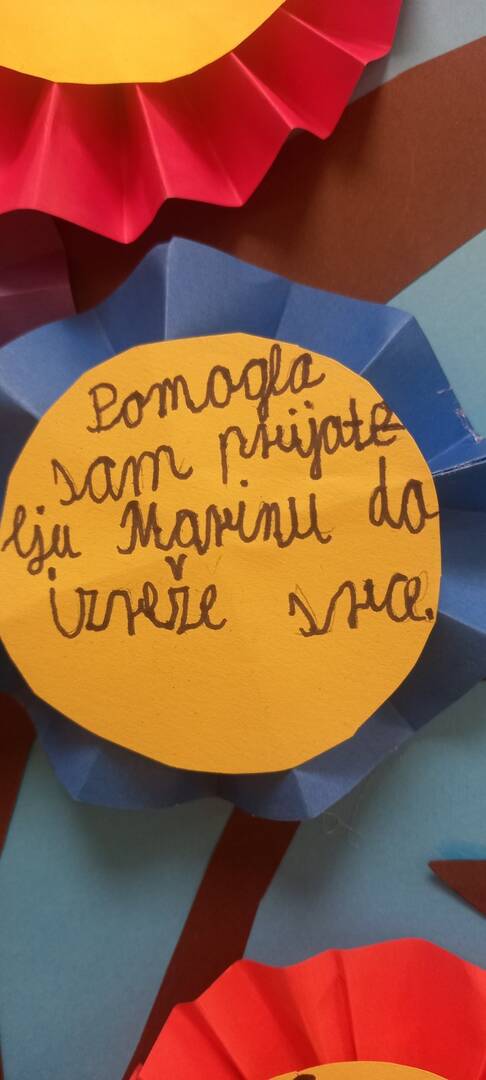 Pomogla
sam prijate
lju Marinu da
izreže srce.